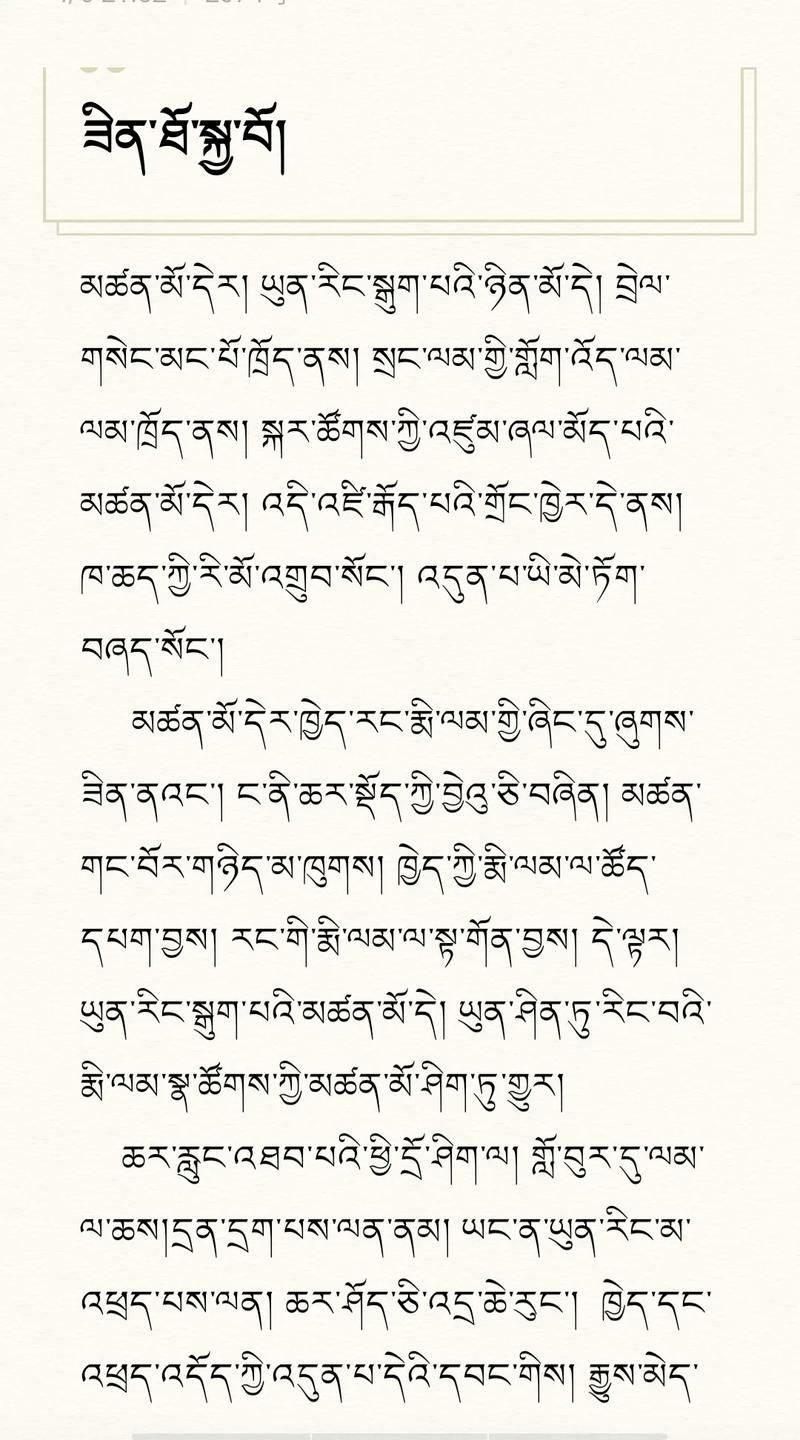 ཟིན་ཐོ་སྐྱ་བོ།
མཚན་མོ་དེར། ཡུན་རིང་སྒུག་པའི་ཉིན་མོ་དེ། བྲེལ་
གསེང་མང་པོ་ཁྲོད་ནས། སྲང་ལམ་གྱི་གློག་འོད་ལམ་
ལམ་ཁྲོད་ནས། སྐར་ཚོགས་ཀྱི་འཛུམ་ཞལ་མོད་པའི་
མཚན་མོ་དེར། འདི་འཛི་རྒོད་པའི་གྲོང་ཁྱེར་དེ་ནས།
ཁ་ཆད་ཀྱི་རི་མོ་འགྲུབ་སོང་། འདུན་པ་ཡི་མེ་ཏོག་
བཞད་སོང་།
མཚན་མོ་དེར་ཁྱེད་རང་རྨི་ལམ་གྱི་ཞིང་དུ་ཞུགས་
ཟིན་ནའང་། ང་ནི་ཆར་སྡོད་ཀྱི་བྱེའུ་ཅི་བཞིན། མཚན་
གང་བོར་གཉིད་མ་ཁུགས། ཁྱེད་ཀྱི་རྨི་ལམ་ལ་ཚོད་
དཔག་བྱས། རང་གི་རྨི་ལམ་ལ་སྟ་གོན་བྱས། དེ་ལྟར།
ཡུན་རིང་སྒུག་པའི་མཚན་མོ་དེ། ཡུན་ཤིན་ཏུ་རིང་བའི་
རྨི་ལམ་སྣ་ཚོགས་ཀྱི་མཚན་མོ་ཤིག་ཏུ་གྱུར།
ཆར་རླུང་འཐབ་པའི་ཕྱི་དྲོ་ཤིག་ལ། གློ་བུར་དུ་ལམ་
ལ་ཆས།དྲན་དྲག་པས་ལན་ནམ། ཡང་ན་ཡུན་རིང་མ་
འཕྲད་པས་ལན། ཆར་ཤོད་ཅི་འདྲ་ཆེ་རུང་། ཁྱེད་དང་
འཕྲད་འདོད་ཀྱི་འདུན་པ་དེའི་དབང་གིས། རྒྱུས་མེད་